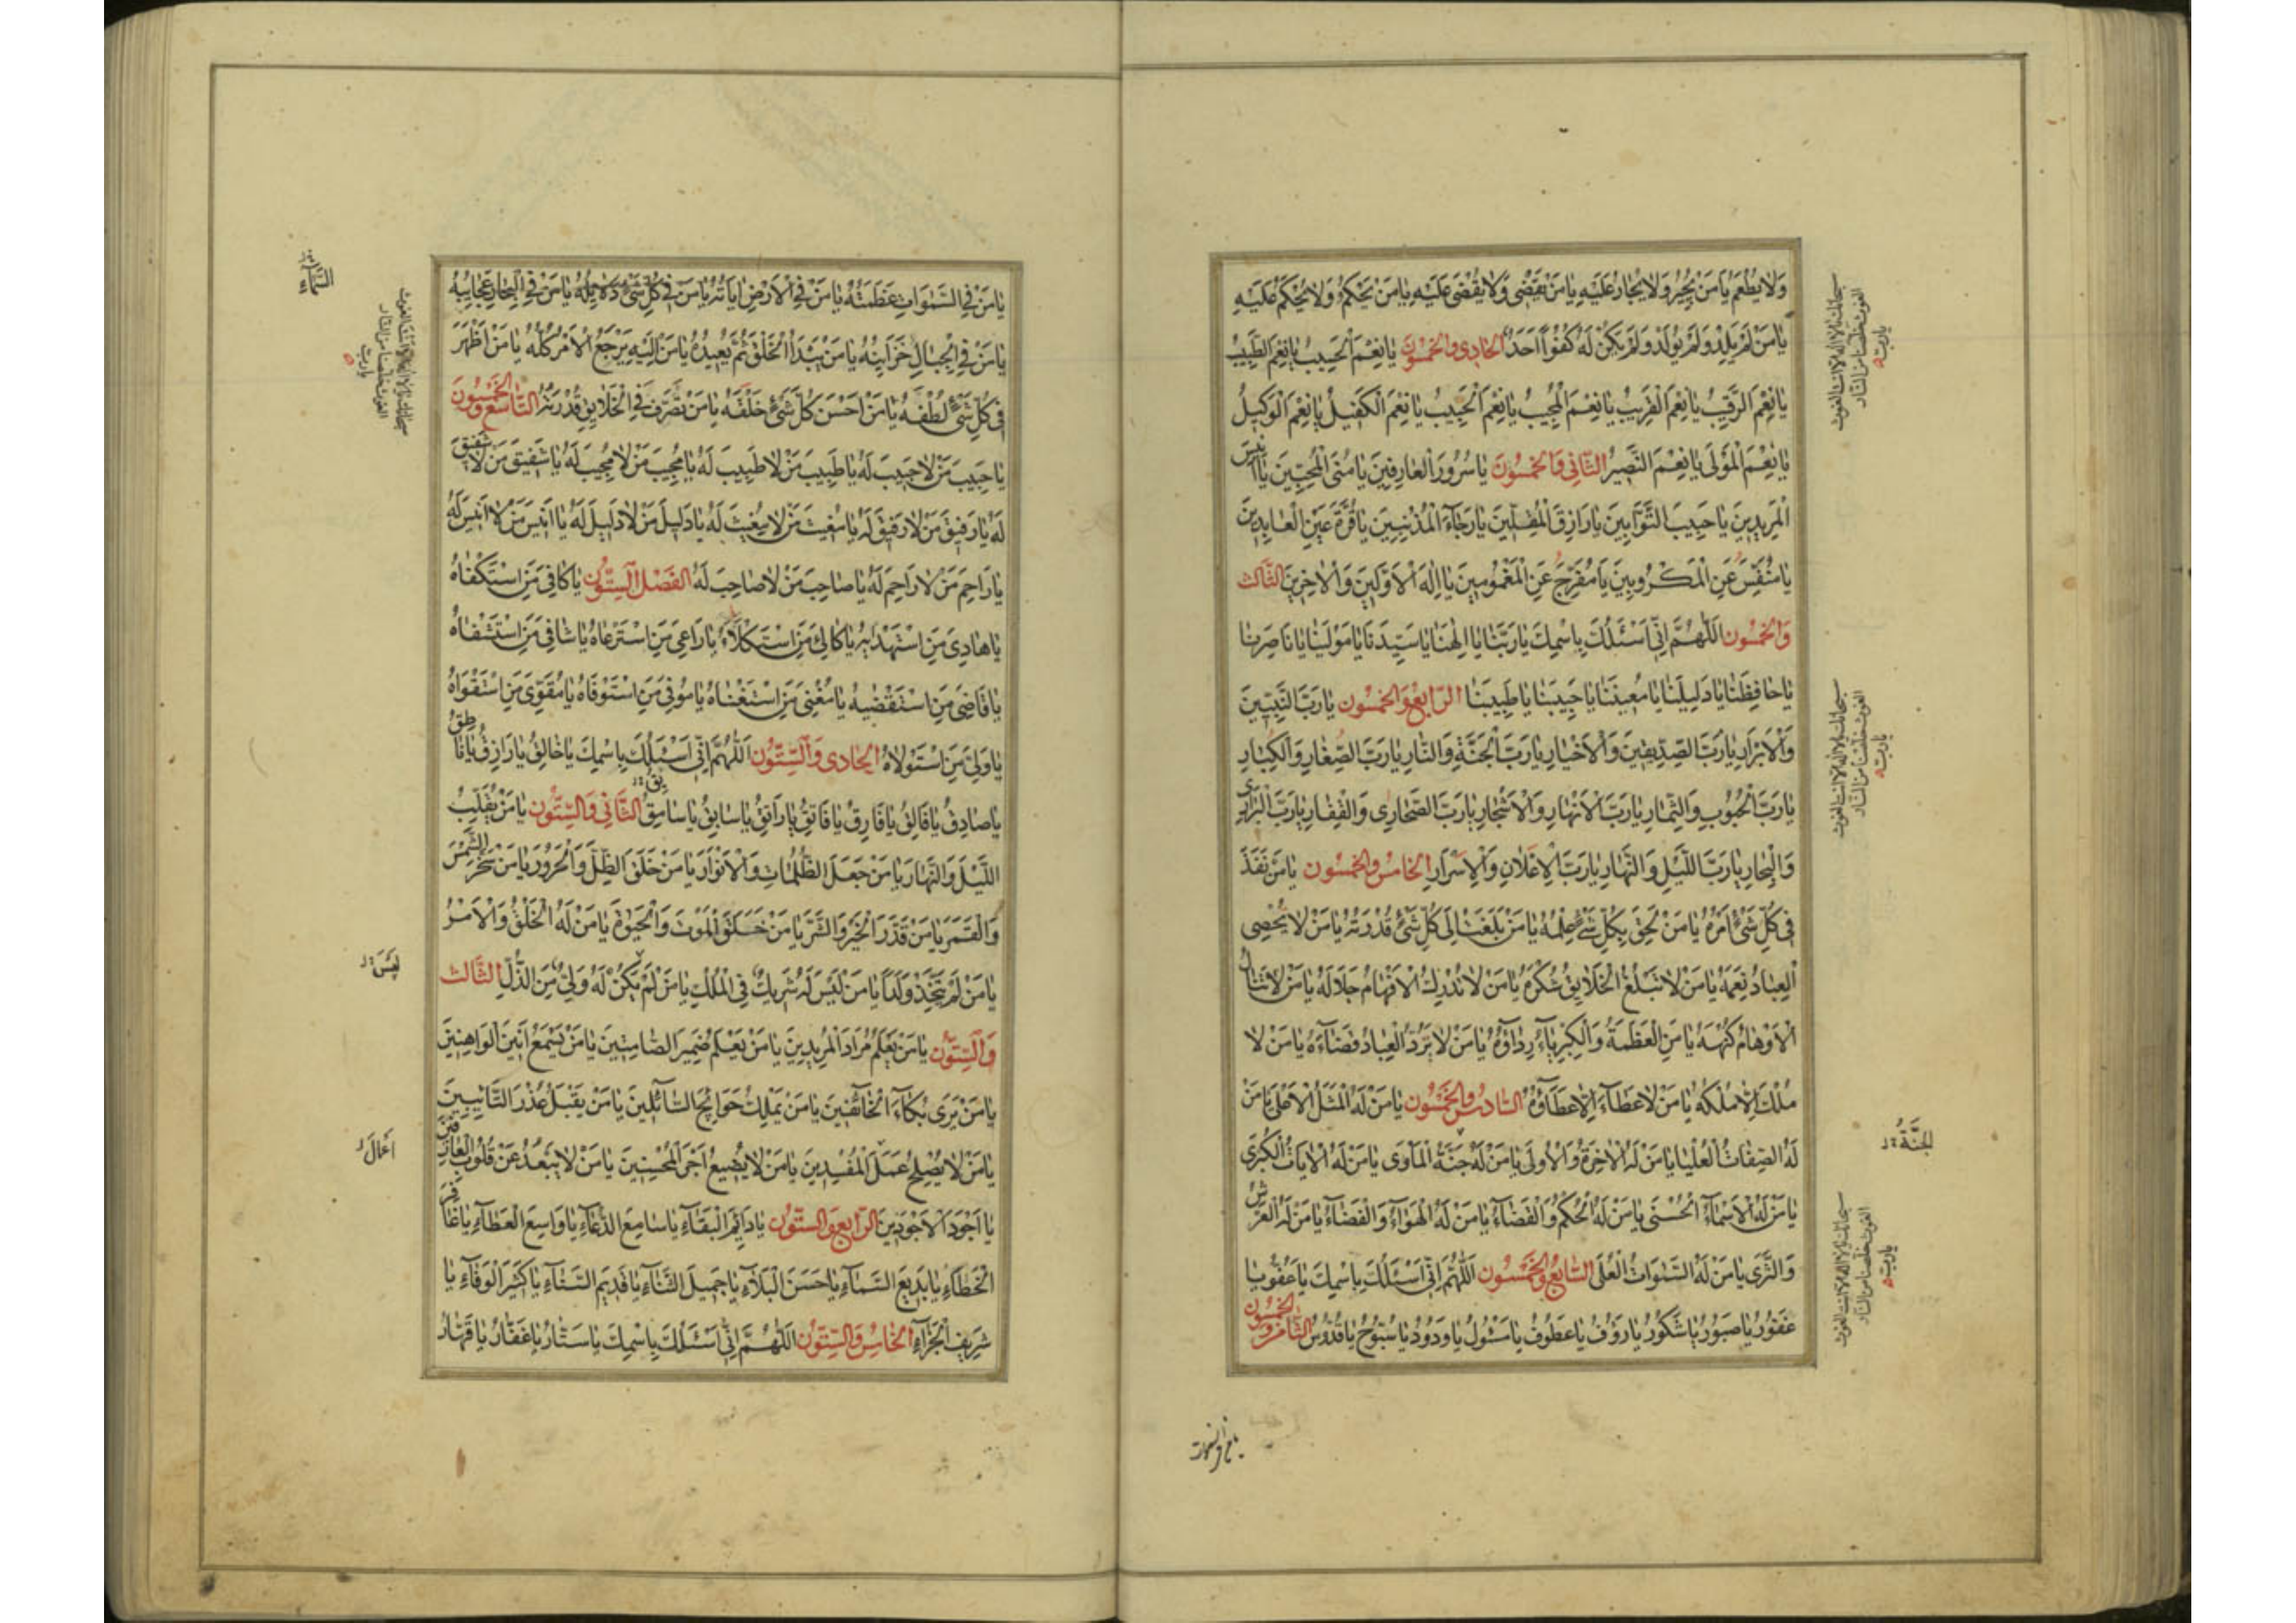 وَلَا يُطْعَمُ يَا مَنْ يُجِيرُ وَلَا يُجَارُ عَلَيْهِ يَا مَنْ يَقْضِي وَلَا يُقْضَى عَلَيْهِ يَا مَنْ يَحْكُمُ وَلَا يُحْكَمُ عَلَيْهِ
يَا مَنْ لَمْ يَلِدْ وَلَمْ يُولَدْ وَلَمْ يَكُنْ لَهُ كُفُوًا أَحَدٌ الحَادِي وَالخَمْسُونَ يَا نِعْمَ الْحَسِيبُ يَا نِعْمَ الطَّبِيبُ
يَا نِعْمَ الرَّقِيبُ يَا نِعْمَ الْقَرِيبُ يَا نِعْمَ الْمُجِيبُ يَا نِعْمَ الْحَبِيبُ يَا نِعْمَ الْكَفِيلُ يَا نِعْمَ الْوَكِيلُ
يَا نِعْمَ الْمَوْلَى يَا نِعْمَ النَّصِيرُ الثَّانِي وَالخَمْسُونَ يَا سُرُورَ الْعَارِفِينَ يَا مُنَى الْمُحِبِّينَ يَا أَنِيسَ
الْمُرِيدِينَ يَا حَبِيبَ التَّوَّابِينَ يَا رَازِقَ الْمُقِلِّينَ يَا رَجَاءَ الْمُذْنِبِينَ يَا قُرَّةَ عَيْنِ الْعَابِدِينَ
يَا مُنَفِّسَ عَنِ الْمَكْرُوبِينَ يَا مُفَرِّجَ عَنِ الْمَغْمُومِينَ يَا إِلٰهَ الْأَوَّلِينَ وَالْآخِرِينَ الثَّالِث
وَالخَمْسُون اللّٰهُمَّ إِنِّي أَسْئَلُكَ بِاسْمِكَ يَا رَبَّنَا يَا إِلٰهَنَا يَا سَيِّدَنَا يَا مَوْلَينَا يَا نَاصِرَنَا
يَا حَافِظَنَا يَا دَلِيلَنَا يَا مُعِينَنَا يَا حَبِيبَنَا يَا طَبِيبَنَا الرَّابِعُ وَالخَمْسُون يَا رَبَّ النَّبِيِّينَ
وَالْأَبْرَارِ يَا رَبَّ الصِّدِّيقِينَ وَالْأَخْيَارِ يَا رَبَّ الْجَنَّةِ وَالنَّارِ يَا رَبَّ الصِّغَارِ وَالْكِبَارِ
يَا رَبَّ الْحُبُوبِ وَالثِّمَارِ يَا رَبَّ الْأَنْهَارِ وَالْأَشْجَارِ يَا رَبَّ الصَّحَارِي وَالْقِفَارِ يَا رَبَّ الْبَرَارِي
وَالْبِحَارِ يَا رَبَّ اللَّيْلِ وَالنَّهَارِ يَا رَبَّ الْإِعْلَانِ وَالْإِسْرَارِ الخَامِسُ وَالخَمْسُون يَا مَنْ نَفَذَ
فِي كُلِّ شَيْءٍ أَمْرُهُ يَا مَنْ لَحِقَ بِكُلِّ شَيْءٍ عِلْمُهُ يَا مَنْ بَلَغَتْ إِلَى كُلِّ شَيْءٍ قُدْرَتُهُ يَا مَنْ لَا يُحْصِي
الْعِبَادُ نِعَمَهُ يَا مَنْ لَا تَبْلُغُ الْخَلَائِقُ شُكْرَهُ يَا مَنْ لَا تُدْرِكُ الْأَفْهَامُ جَلَالَهُ يَا مَنْ لَا تَنَالُ
الْأَوْهَامُ كُنْهَهُ يَا مَنِ الْعَظَمَةُ وَالْكِبْرِيَاءُ رِدَاؤُهُ يَا مَنْ لَا يَرُدُّ الْعِبَادُ قَضَاءَهُ يَا مَنْ لَا
مُلْكَ إِلَّا مُلْكُهُ يَا مَنْ لَا عَطَاءَ إِلَّا عَطَاؤُهُ السَّادِسُ وَالخَمْسُون يَا مَنْ لَهُ الْمَثَلُ الْأَعْلَى يَا مَنْ
لَهُ الصِّفَاتُ الْعُلْيَا يَا مَنْ لَهُ الْآخِرَةُ وَالْأُولَى يَا مَنْ لَهُ جَنَّةُ الْمَأْوَى يَا مَنْ لَهُ الْآيَاتُ الْكُبْرَى
يَا مَنْ لَهُ الْأَسْمَاءُ الْحُسْنَى يَا مَنْ لَهُ الْحُكْمُ وَالْقَضَاءُ يَا مَنْ لَهُ الْهَوَاءُ وَالْفَضَاءُ يَا مَنْ لَهُ الْعَرْشُ
وَالثَّرَى يَا مَنْ لَهُ السَّمٰوَاتُ الْعُلَى السَّابِعُ وَالخَمْسُون اللّٰهُمَّ إِنِّي أَسْئَلُكَ بِاسْمِكَ يَا عَفُوُّ يَا
غَفُورُ يَا صَبُورُ يَا شَكُورُ يَا رَؤُفُ يَا عَطُوفُ يَا مَسْئُولُ يَا وَدُودُ يَا سُبُّوحُ يَا قُدُّوسُ الثَّامِنُ وَالخَمْسُون
سبحانك يا لا اله الا انت الغوث
الغوث خلصنا من النار
يا رب
سبحانك يا لا اله الا انت الغوث
الغوث خلصنا من النار
يا رب
الجَنَّة
سبحانك يا لا اله الا انت الغوث
الغوث خلصنا من النار
يا رب
يا من في السموات
يَا مَنْ فِي السَّمٰوَاتِ عَظَمَتُهُ يَا مَنْ فِي الْأَرْضِ آيَاتُهُ يَا مَنْ فِي كُلِّ شَيْءٍ دَلَائِلُهُ يَا مَنْ فِي الْبِحَارِ عَجَائِبُهُ
يَا مَنْ فِي الْجِبَالِ خَزَائِنُهُ يَا مَنْ يَبْدَأُ الْخَلْقَ ثُمَّ يُعِيدُهُ يَا مَنْ إِلَيْهِ يَرْجِعُ الْأَمْرُ كُلُّهُ يَا مَنْ أَظْهَرَ
فِي كُلِّ شَيْءٍ لُطْفَهُ يَا مَنْ أَحْسَنَ كُلَّ شَيْءٍ خَلْقَهُ يَا مَنْ تَصَرَّفَ فِي الْخَلَائِقِ قُدْرَتُهُ التَّاسِعُ وَالخَمْسُونَ
يَا حَبِيبَ مَنْ لَا حَبِيبَ لَهُ يَا طَبِيبَ مَنْ لَا طَبِيبَ لَهُ يَا مُجِيبَ مَنْ لَا مُجِيبَ لَهُ يَا شَفِيقَ مَنْ لَا شَفِيقَ
لَهُ يَا رَفِيقَ مَنْ لَا رَفِيقَ لَهُ يَا مُغِيثَ مَنْ لَا مُغِيثَ لَهُ يَا دَلِيلَ مَنْ لَا دَلِيلَ لَهُ يَا أَنِيسَ مَنْ لَا أَنِيسَ لَهُ
يَا رَاحِمَ مَنْ لَا رَاحِمَ لَهُ يَا صَاحِبَ مَنْ لَا صَاحِبَ لَهُ الفَصْلُ السِّتُّون يَا كَافِيَ مَنِ اسْتَكْفَاهُ
يَا هَادِيَ مَنِ اسْتَهْدَيهُ يَا كَالِئَ مَنِ اسْتَكْلَاهُ يَا رَاعِيَ مَنِ اسْتَرْعَاهُ يَا شَافِيَ مَنِ اسْتَشْفَاهُ
يَا قَاضِيَ مَنِ اسْتَقْضٰيهُ يَا مُغْنِيَ مَنِ اسْتَغْنَاهُ يَا مُوفِيَ مَنِ اسْتَوْفَاهُ يَا مُقَوِّيَ مَنِ اسْتَقْوَاهُ
يَا وَلِيَّ مَنِ اسْتَوْلَاهُ الحَادِي وَالسِّتُّون اللّٰهُمَّ إِنِّي أَسْئَلُكَ بِاسْمِكَ يَا خَالِقُ يَا رَازِقُ يَا نَاطِقُ
يَا صَادِقُ يَا فَالِقُ يَا فَارِقُ يَا فَاتِقُ يَا رَاتِقُ يَا سَابِقُ يَا سَامِقُ الثَّانِي وَالسِّتُّون يَا مَنْ يُقَلِّبُ
اللَّيْلَ وَالنَّهَارَ يَا مَنْ جَعَلَ الظُّلُمَاتِ وَالْأَنْوَارَ يَا مَنْ خَلَقَ الظِّلَّ وَالْحَرُورَ يَا مَنْ سَخَّرَ الشَّمْسَ
وَالْقَمَرَ يَا مَنْ قَدَّرَ الْخَيْرَ وَالشَّرَّ يَا مَنْ خَلَقَ الْمَوْتَ وَالْحَيٰوةَ يَا مَنْ لَهُ الْخَلْقُ وَالْأَمْرُ
يَا مَنْ لَمْ يَتَّخِذْ وَلَدًا يَا مَنْ لَيْسَ لَهُ شَرِيكٌ فِي الْمُلْكِ يَا مَنْ لَمْ يَكُنْ لَهُ وَلِيٌّ مِنَ الذُّلِّ الثَّالِث
وَالسِّتُّون يَا مَنْ يَعْلَمُ مُرَادَ الْمُرِيدِينَ يَا مَنْ يَعْلَمُ ضَمِيرَ الصَّامِتِينَ يَا مَنْ يَسْمَعُ أَنِينَ الْوَاهِنِينَ
يَا مَنْ يَرَى بُكَاءَ الْخَائِفِينَ يَا مَنْ يَمْلِكُ حَوَائِجَ السَّائِلِينَ يَا مَنْ يَقْبَلُ عُذْرَ التَّائِبِينَ
يَا مَنْ لَا يُصْلِحُ عَمَلَ الْمُفْسِدِينَ يَا مَنْ لَا يُضِيعُ أَجْرَ الْمُحْسِنِينَ يَا مَنْ لَا يَبْعُدُ عَنْ قُلُوبِ الْعَارِفِينَ
يَا أَجْوَدَ الْأَجْوَدِينَ الرَّابِعُ وَالسِّتُّون يَا دَائِمَ الْبَقَاءِ يَا سَامِعَ الدُّعَاءِ يَا وَاسِعَ الْعَطَاءِ يَا غَافِرَ
الْخَطَاءِ يَا بَدِيعَ السَّمَاءِ يَا حَسَنَ الْبَلَاءِ يَا جَمِيلَ الثَّنَاءِ يَا قَدِيمَ السَّنَاءِ يَا كَثِيرَ الْوَفَاءِ يَا
شَرِيفَ الْجَزَاءِ الخَامِسُ وَالسِّتُّون اللّٰهُمَّ إِنِّي أَسْئَلُكَ بِاسْمِكَ يَا سَتَّارُ يَا غَفَّارُ يَا قَهَّارُ
السَّمَاءِ
سبحانك يا لا اله الا انت الغوث
الغوث خلصنا من النار
يا رب
لَيْسَ
أَعْمَالَ